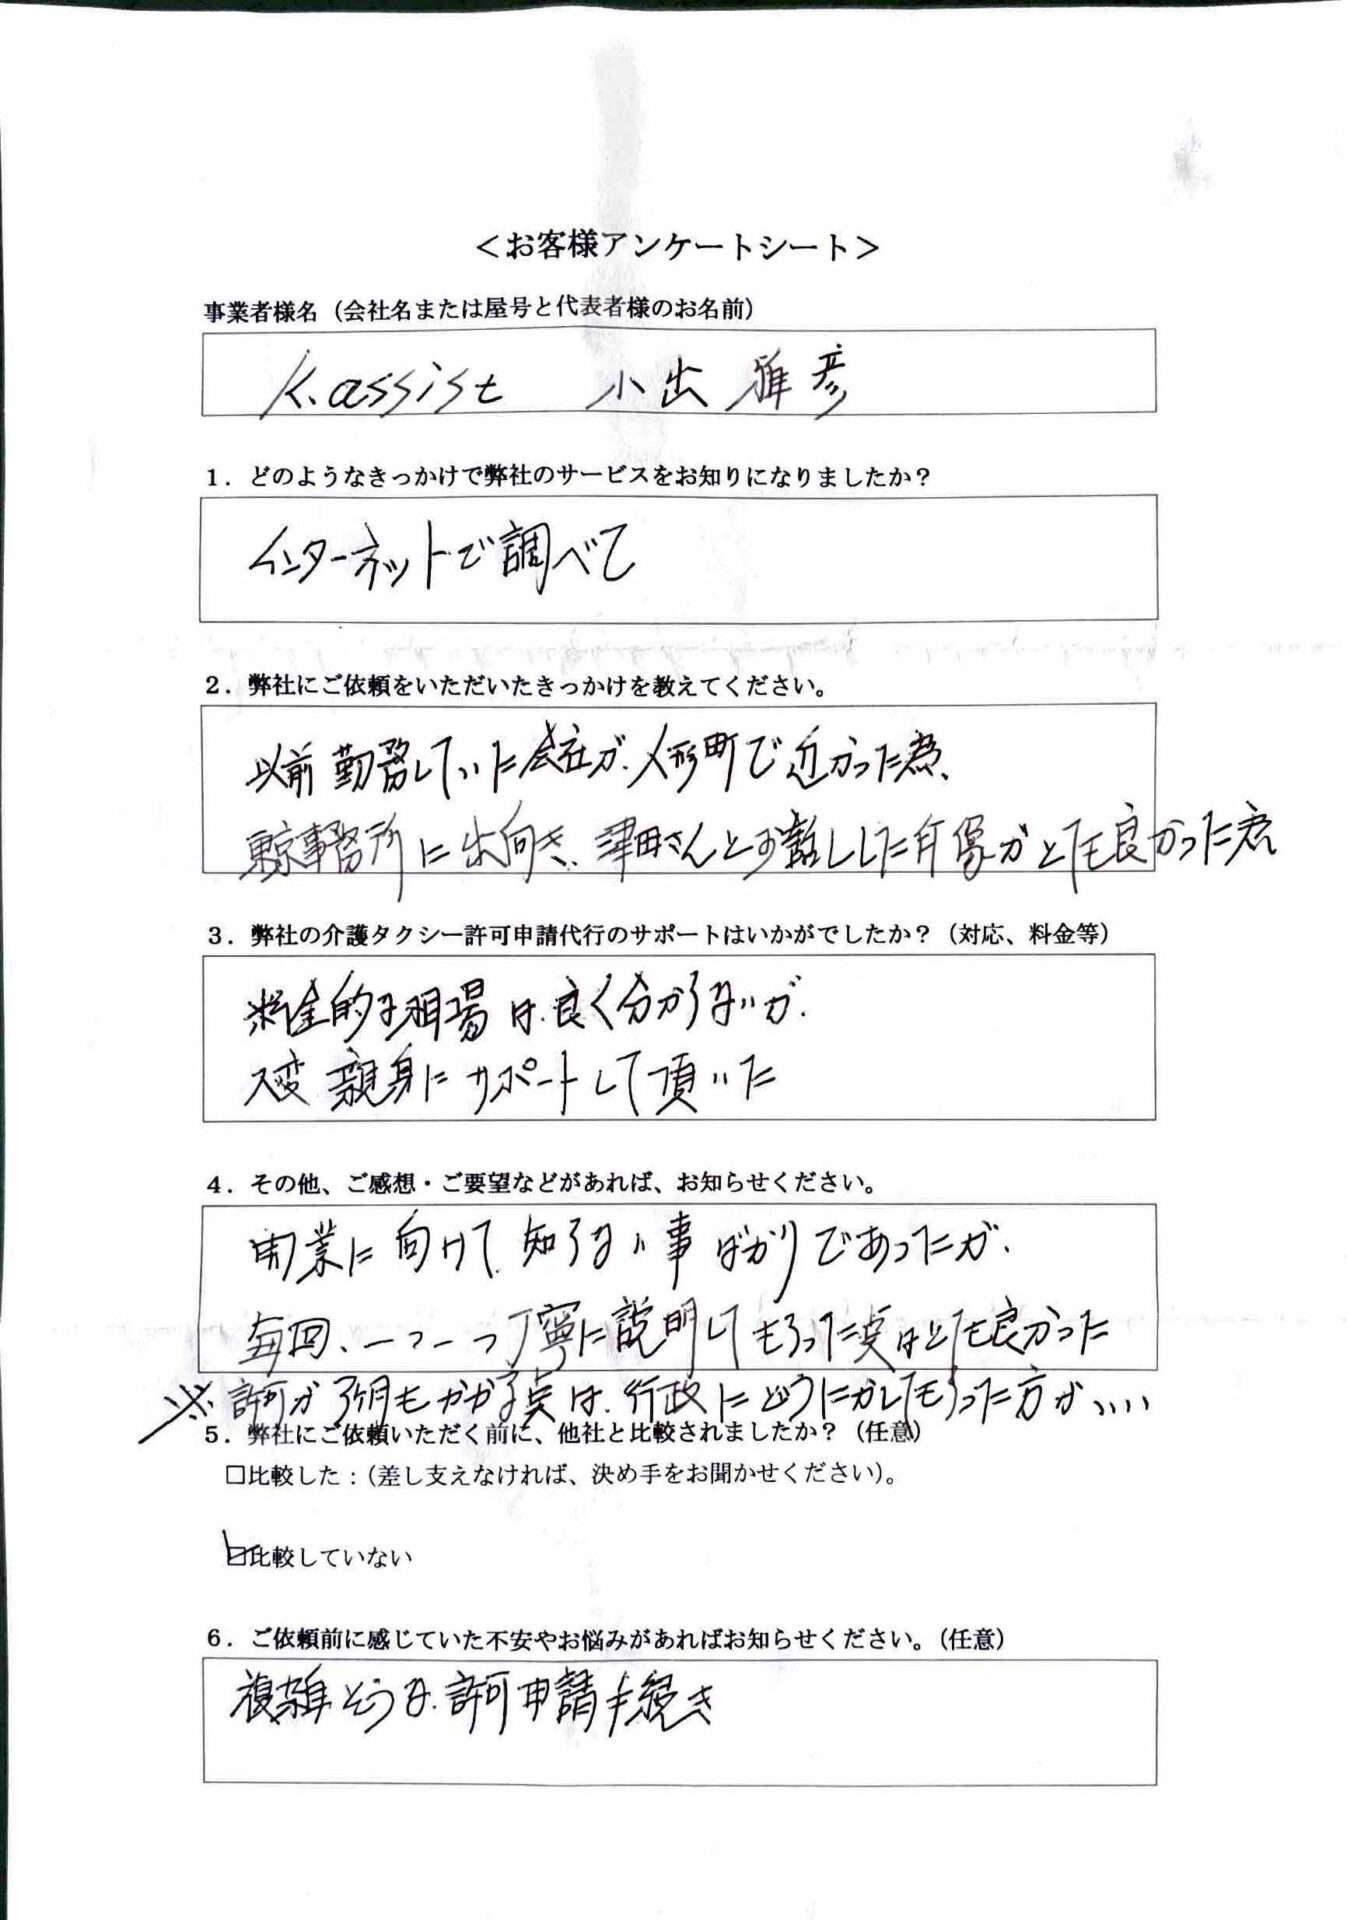 ＜お客様アンケートシート＞
事業者様名（会社名または屋号と代表者様のお名前）
K.assist 小出 雅彦
1．どのようなきっかけで弊社のサービスをお知りになりましたか？
インターネットで調べて
2．弊社にご依頼をいただいたきっかけを教えてください。
以前勤務していた会社が、人形町で近かった為、
東京事務所に出向き、津田さんとお話しした印象がとても良かった為
3．弊社の介護タクシー許可申請代行のサポートはいかがでしたか？（対応、料金等）
料金的な相場は良く分からないが、
大変親身にサポートして頂いた
4．その他、ご感想・ご要望などがあれば、お知らせください。
開業に向けて、知らない事ばかりであったが、
毎回、一つ一つ丁寧に説明してもらった点はとても良かった
※許可が3ヶ月もかかる点は、行政にどうにかしてもらった方がいい
5．弊社にご依頼いただく前に、他社と比較されましたか？（任意）
□比較した：（差し支えなければ、決め手をお聞かせください）。
☑比較していない
6．ご依頼前に感じていた不安やお悩みがあればお知らせください。（任意）
複雑そうな、許可申請手続き